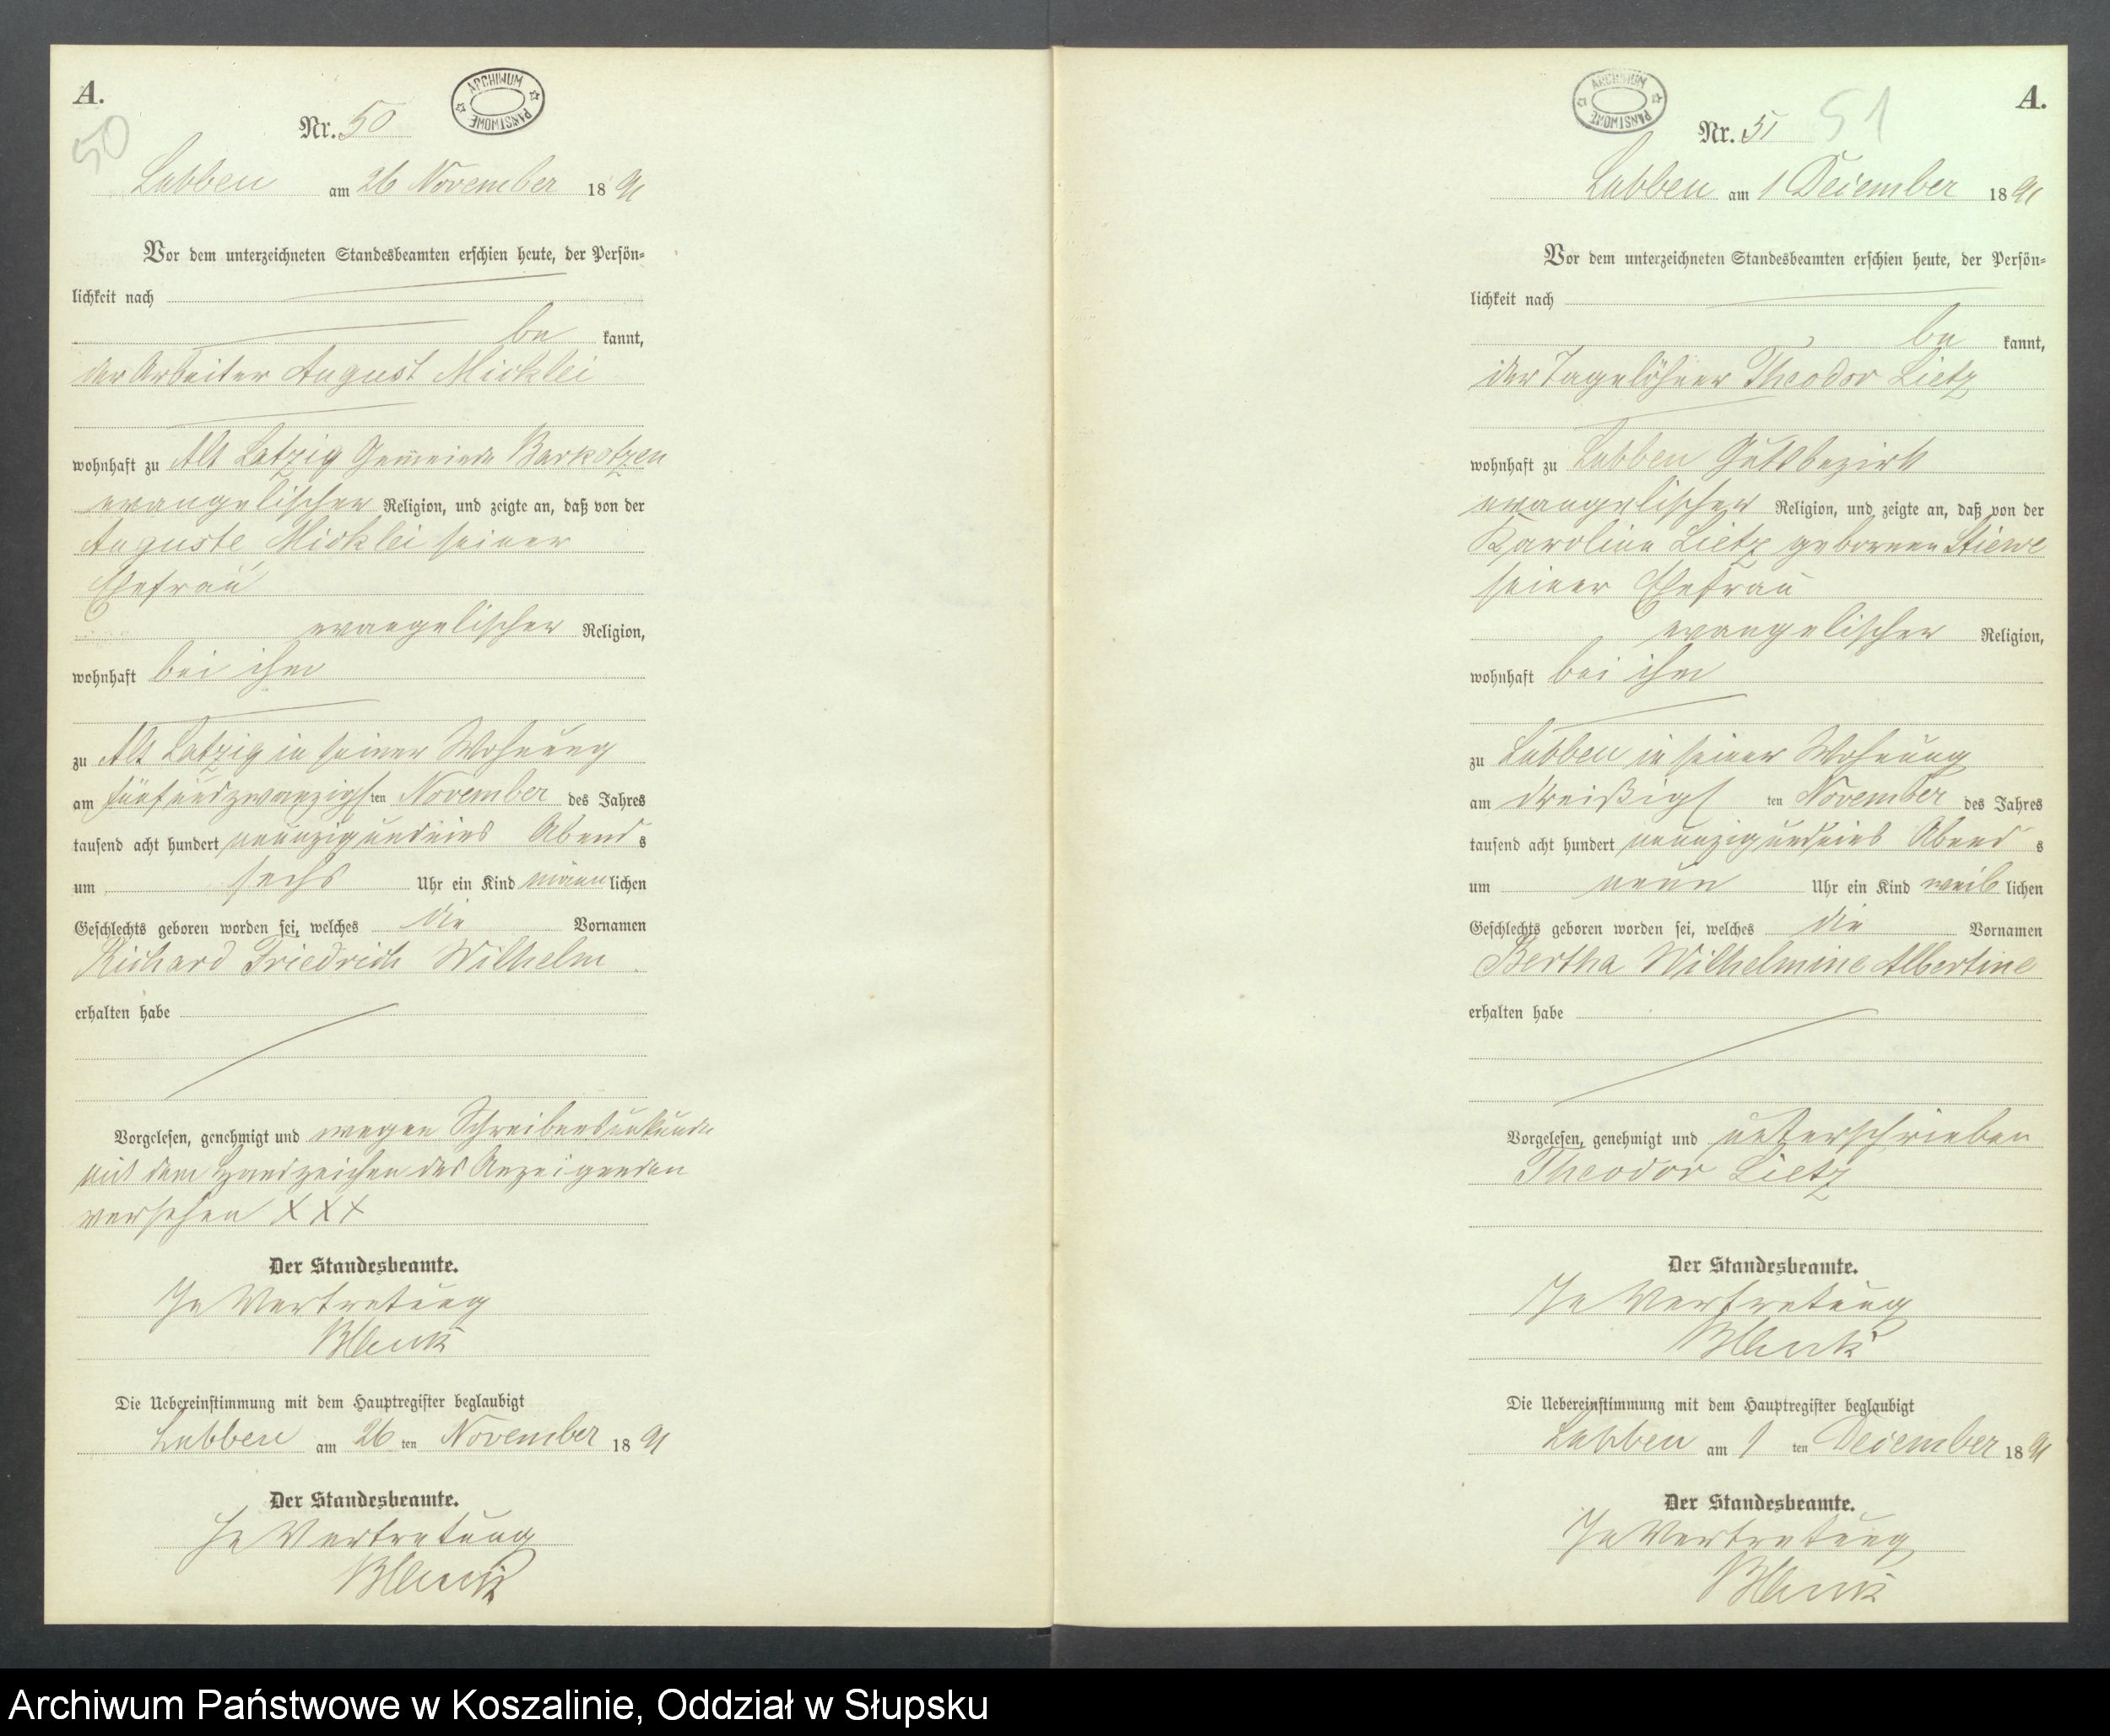 A.
50
ARCHIWUM PAŃSTWOWE
Nr. 50
Labben am 26 November 1891
Vor dem unterzeichneten Standesbeamten erschien heute, der Persön=
lichkeit nach
be kannt,
der Arbeiter August Micklei
wohnhaft zu Alt Latzig Gemeinde Barkotzen
evangelischer Religion, und zeigte an, daß von der
Auguste Micklei seiner
Ehefrau
evangelischer Religion,
wohnhaft bei ihm
zu Alt Latzig in seiner Wohnung
am fünfundzwanzigsten November des Jahres
tausend acht hundert neunzigundeins Abends
um sechs Uhr ein Kind männlichen
Geschlechts geboren worden sei, welches die Vornamen
Richard Friedrich Wilhelm
erhalten habe
Vorgelesen, genehmigt und wegen Schreibensunkunde
mit dem Handzeichen des Anzeigenden
versehen XXX
Der Standesbeamte.
In Vertretung
Die Uebereinstimmung mit dem Hauptregister beglaubigt
Labben am 26 ten November 1891
Der Standesbeamte.
In Vertretung
A.
51
ARCHIWUM PAŃSTWOWE
Nr. 51
Labben am 1 December 1891
Vor dem unterzeichneten Standesbeamten erschien heute, der Persön=
lichkeit nach
be kannt,
der Tagelöhner Theodor Lietz
wohnhaft zu Labben Gutsbezirk
evangelischer Religion, und zeigte an, daß von der
Karoline Lietz geborenen Stiewe
seiner Ehefrau
evangelischer Religion,
wohnhaft bei ihm
zu Labben in seiner Wohnung
am dreißigsten November des Jahres
tausend acht hundert neunzigundeins Abends
um neun Uhr ein Kind weiblichen
Geschlechts geboren worden sei, welches die Vornamen
Bertha Wilhelmine Albertine
erhalten habe
Vorgelesen, genehmigt und unterschrieben
Theodor Lietz
Der Standesbeamte.
In Vertretung
Die Uebereinstimmung mit dem Hauptregister beglaubigt
Labben am 1 ten December 1891
Der Standesbeamte.
In Vertretung
Archiwum Państwowe w Koszalinie, Oddział w Słupsku